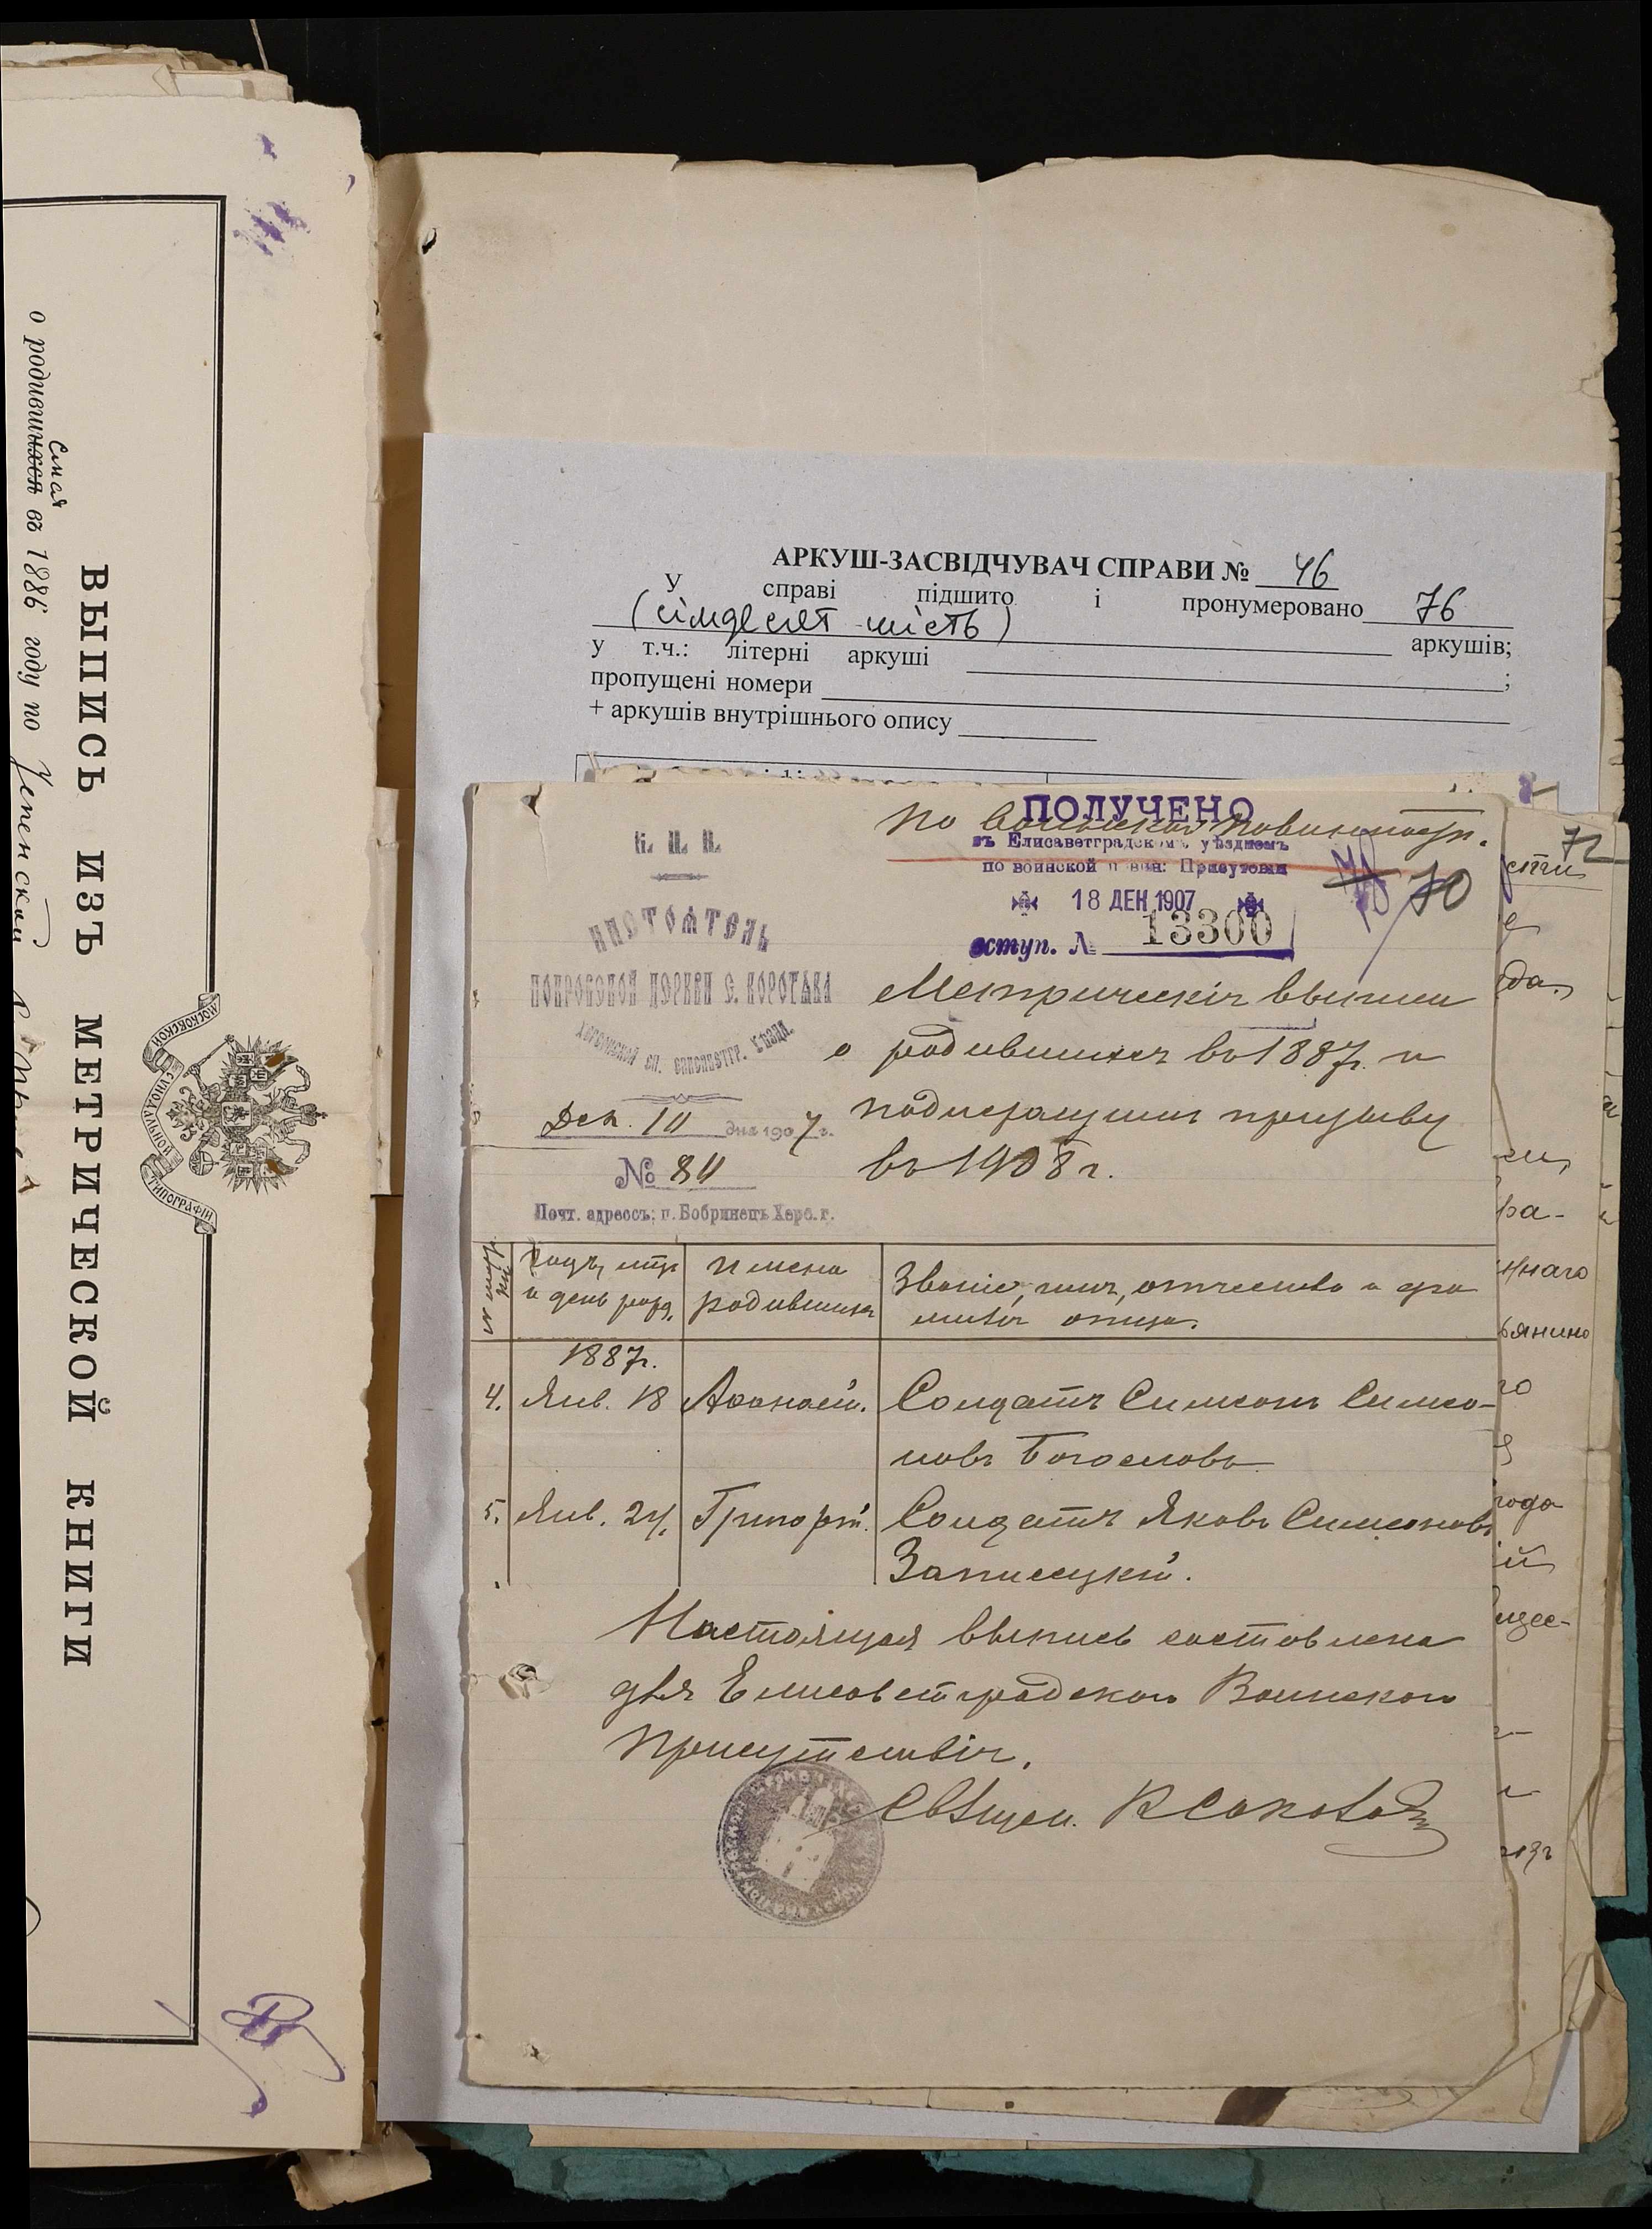 ВЫПИСЬ ИЗЪ МЕТРИЧЕСКОЙ КНИГИ
сная
о родившихся въ 1886 году по Успенской
МОСКОВСКОЙ СѴНОДАЛЬНОЙ ТИПОГРАФІИ
АРКУШ-ЗАСВІДЧУВАЧ СПРАВИ № 46
У справі підшито і пронумеровано 76
(сімдесят шість) аркушів;
у т.ч.: літерні аркуші ;
пропущені номери
+ аркушів внутрішнього опису
ПОЛУЧЕНО
По воинской повинности.
въ Елисаветградскомъ уѣздномъ
по воинской повин: Присутствіи
18 ДЕК 1907
вступ. № 13300
70
72
Н. П. И.
НАСТОЯТЕЛЬ
ПОКРОВСКОЙ ЦЕРКВИ С. КОРОТЯКА
ХЕРСОНСКОЙ ЕП. ЕЛИСАВЕТГР. УѢЗДА.
Дек. 10 дня 1907 г.
№ 84
Почт. адресъ: п. Бобринецъ Херс. г.
Метрическія выписи
о родившихся въ 1887 г. и
подлежащихъ призыву
въ 1908 г.
Годъ, мѣс. и день рожд.
Имена родившихся
Званіе, имя, отчество и фамилія отца.
1887 г.
4. Янв. 18 Аѳанасій. Солдатъ Симеонъ Симео-
новъ Богословъ
5. Янв. 24. Григорій. Солдатъ Яковъ Симеоновъ
Записецкій.
Настоящая выпись составлена
для Елисаветградскаго Воинскаго
Присутствія.
Священ.